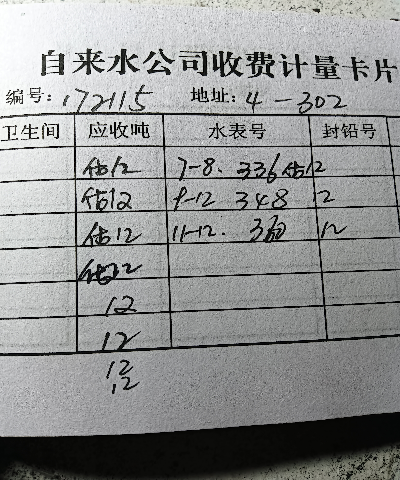 自来水公司收费计量卡片
编号: 172115 地址: 4-302
卫生间 应收吨 水表号 封铅号
估12 7-8. 336估12
估12 9-12 348 12
估12 11-12. 360 12
估12
12
12
12
12